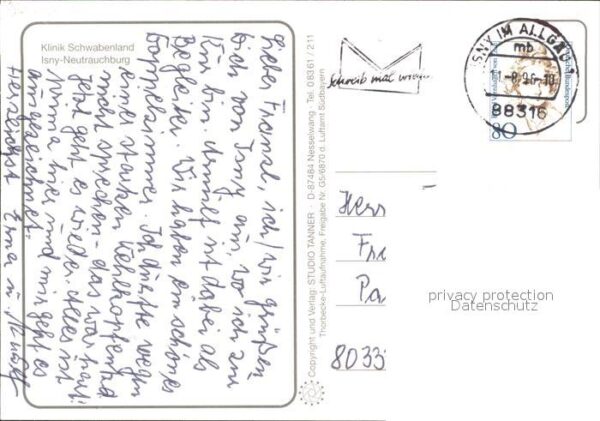 Klinik Schwabenland
Isny-Neutrauchburg
Lieber ich/wir grüßen
Dich von Isny aus, wo ich zur
Kur bin. ist dabei, als
Begleiter. Wir haben ein schönes
Doppelzimmer. Ich durfte wegen
einer starken Kehlkopfentzd.
nicht sprechen - das war hart.
Jetzt geht es wieder. Alles ist
prima hier und mir geht es
ausgezeichnet.
Herzlichst Erna u.
Copyright und Verlag: STUDIO TANNER · D-87484 Nesselwang · Tel. 08361 / 211
Thorbecke-Luftaufnahme, Freigabe Nr. GS/6870 d. Luftamt Südbayern
Schreib mal wieder
ISNY IM ALLGÄU 1
mb
88316
80
Deutsche Bundespost
Herr
Fr
Pa
8033
privacy protection
Datenschutz